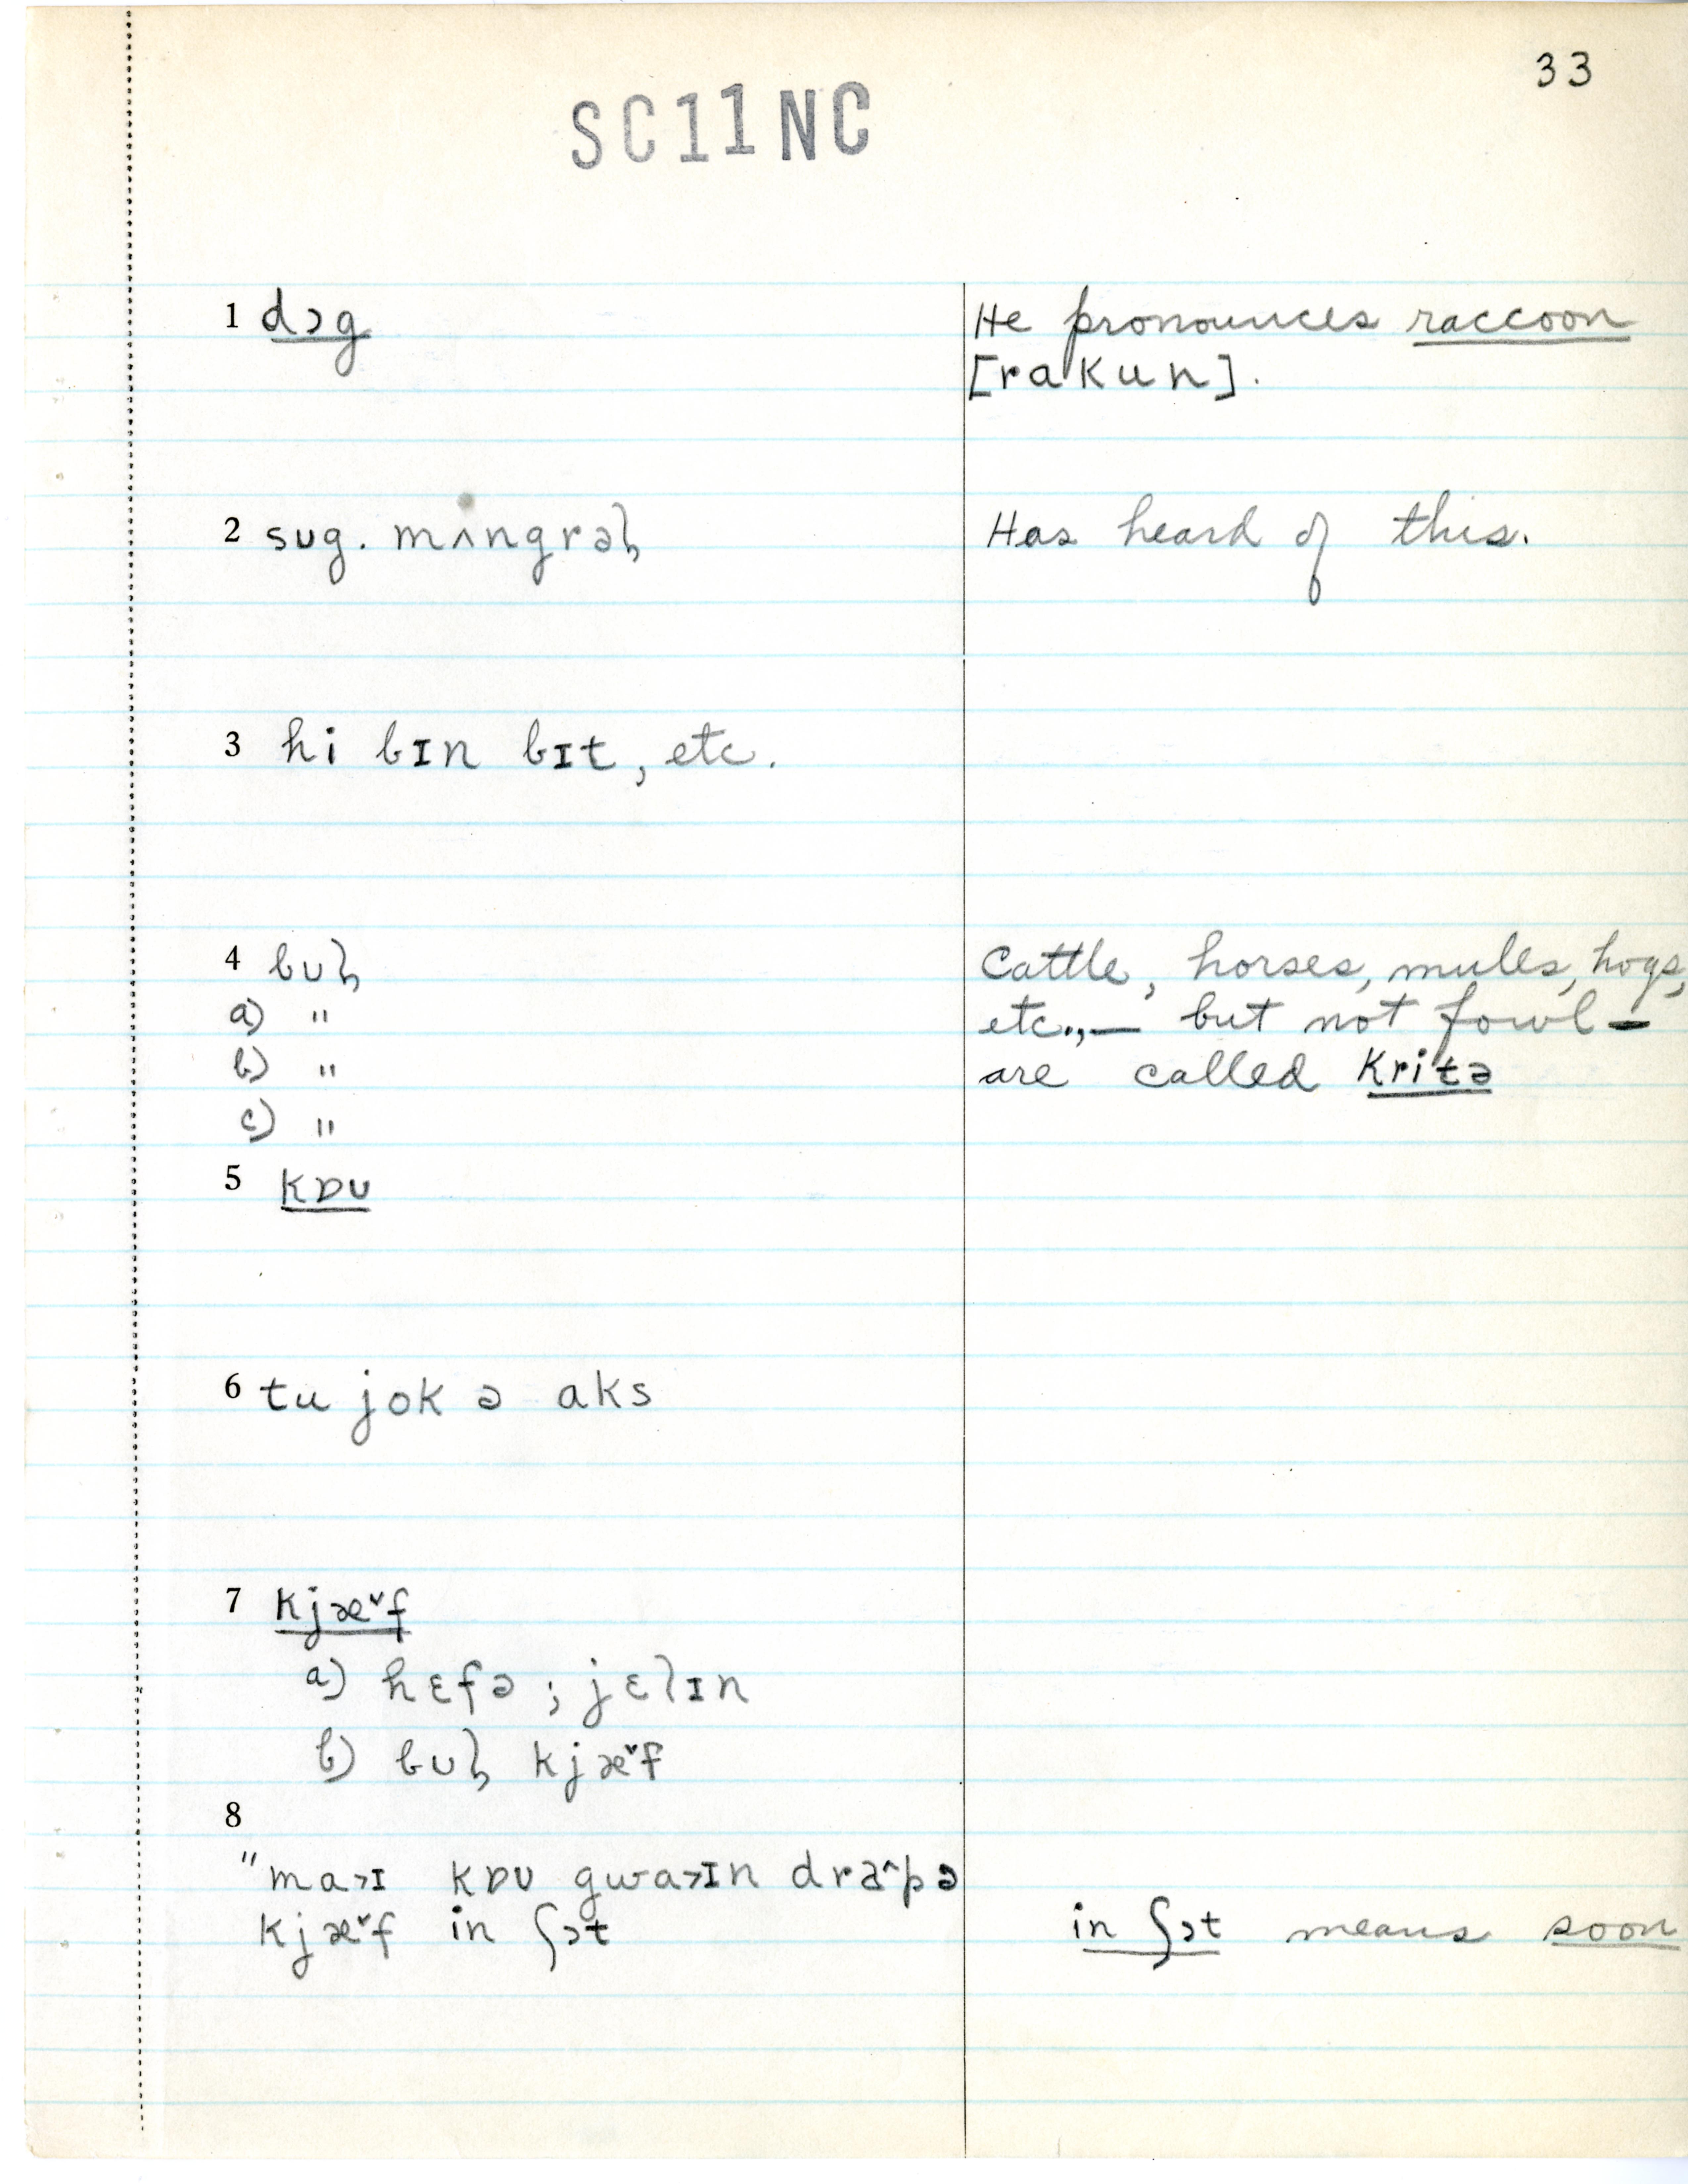 33
SC11NC
1 dɔg
He pronounces raccoon
[rakun].
2 sug. mʌngrəl̥
Has heard of this.
3 hi bɪn bɪt, etc.
4 bul̥
a) "
b) "
c) "
Cattle, horses, mules, hogs,
etc., — but not fowl —
are called kritə
5 kɒu
6 tu jok ə aks
7 kjæ˅f
a) hɛfə ; jɛlɪn
b) bul̥ kjæ˅f
8
"ma˃ɪ kɒu gwa˃ɪn drə˄pə
kjæ˅f in ʃɔt
in ʃɔt means soon